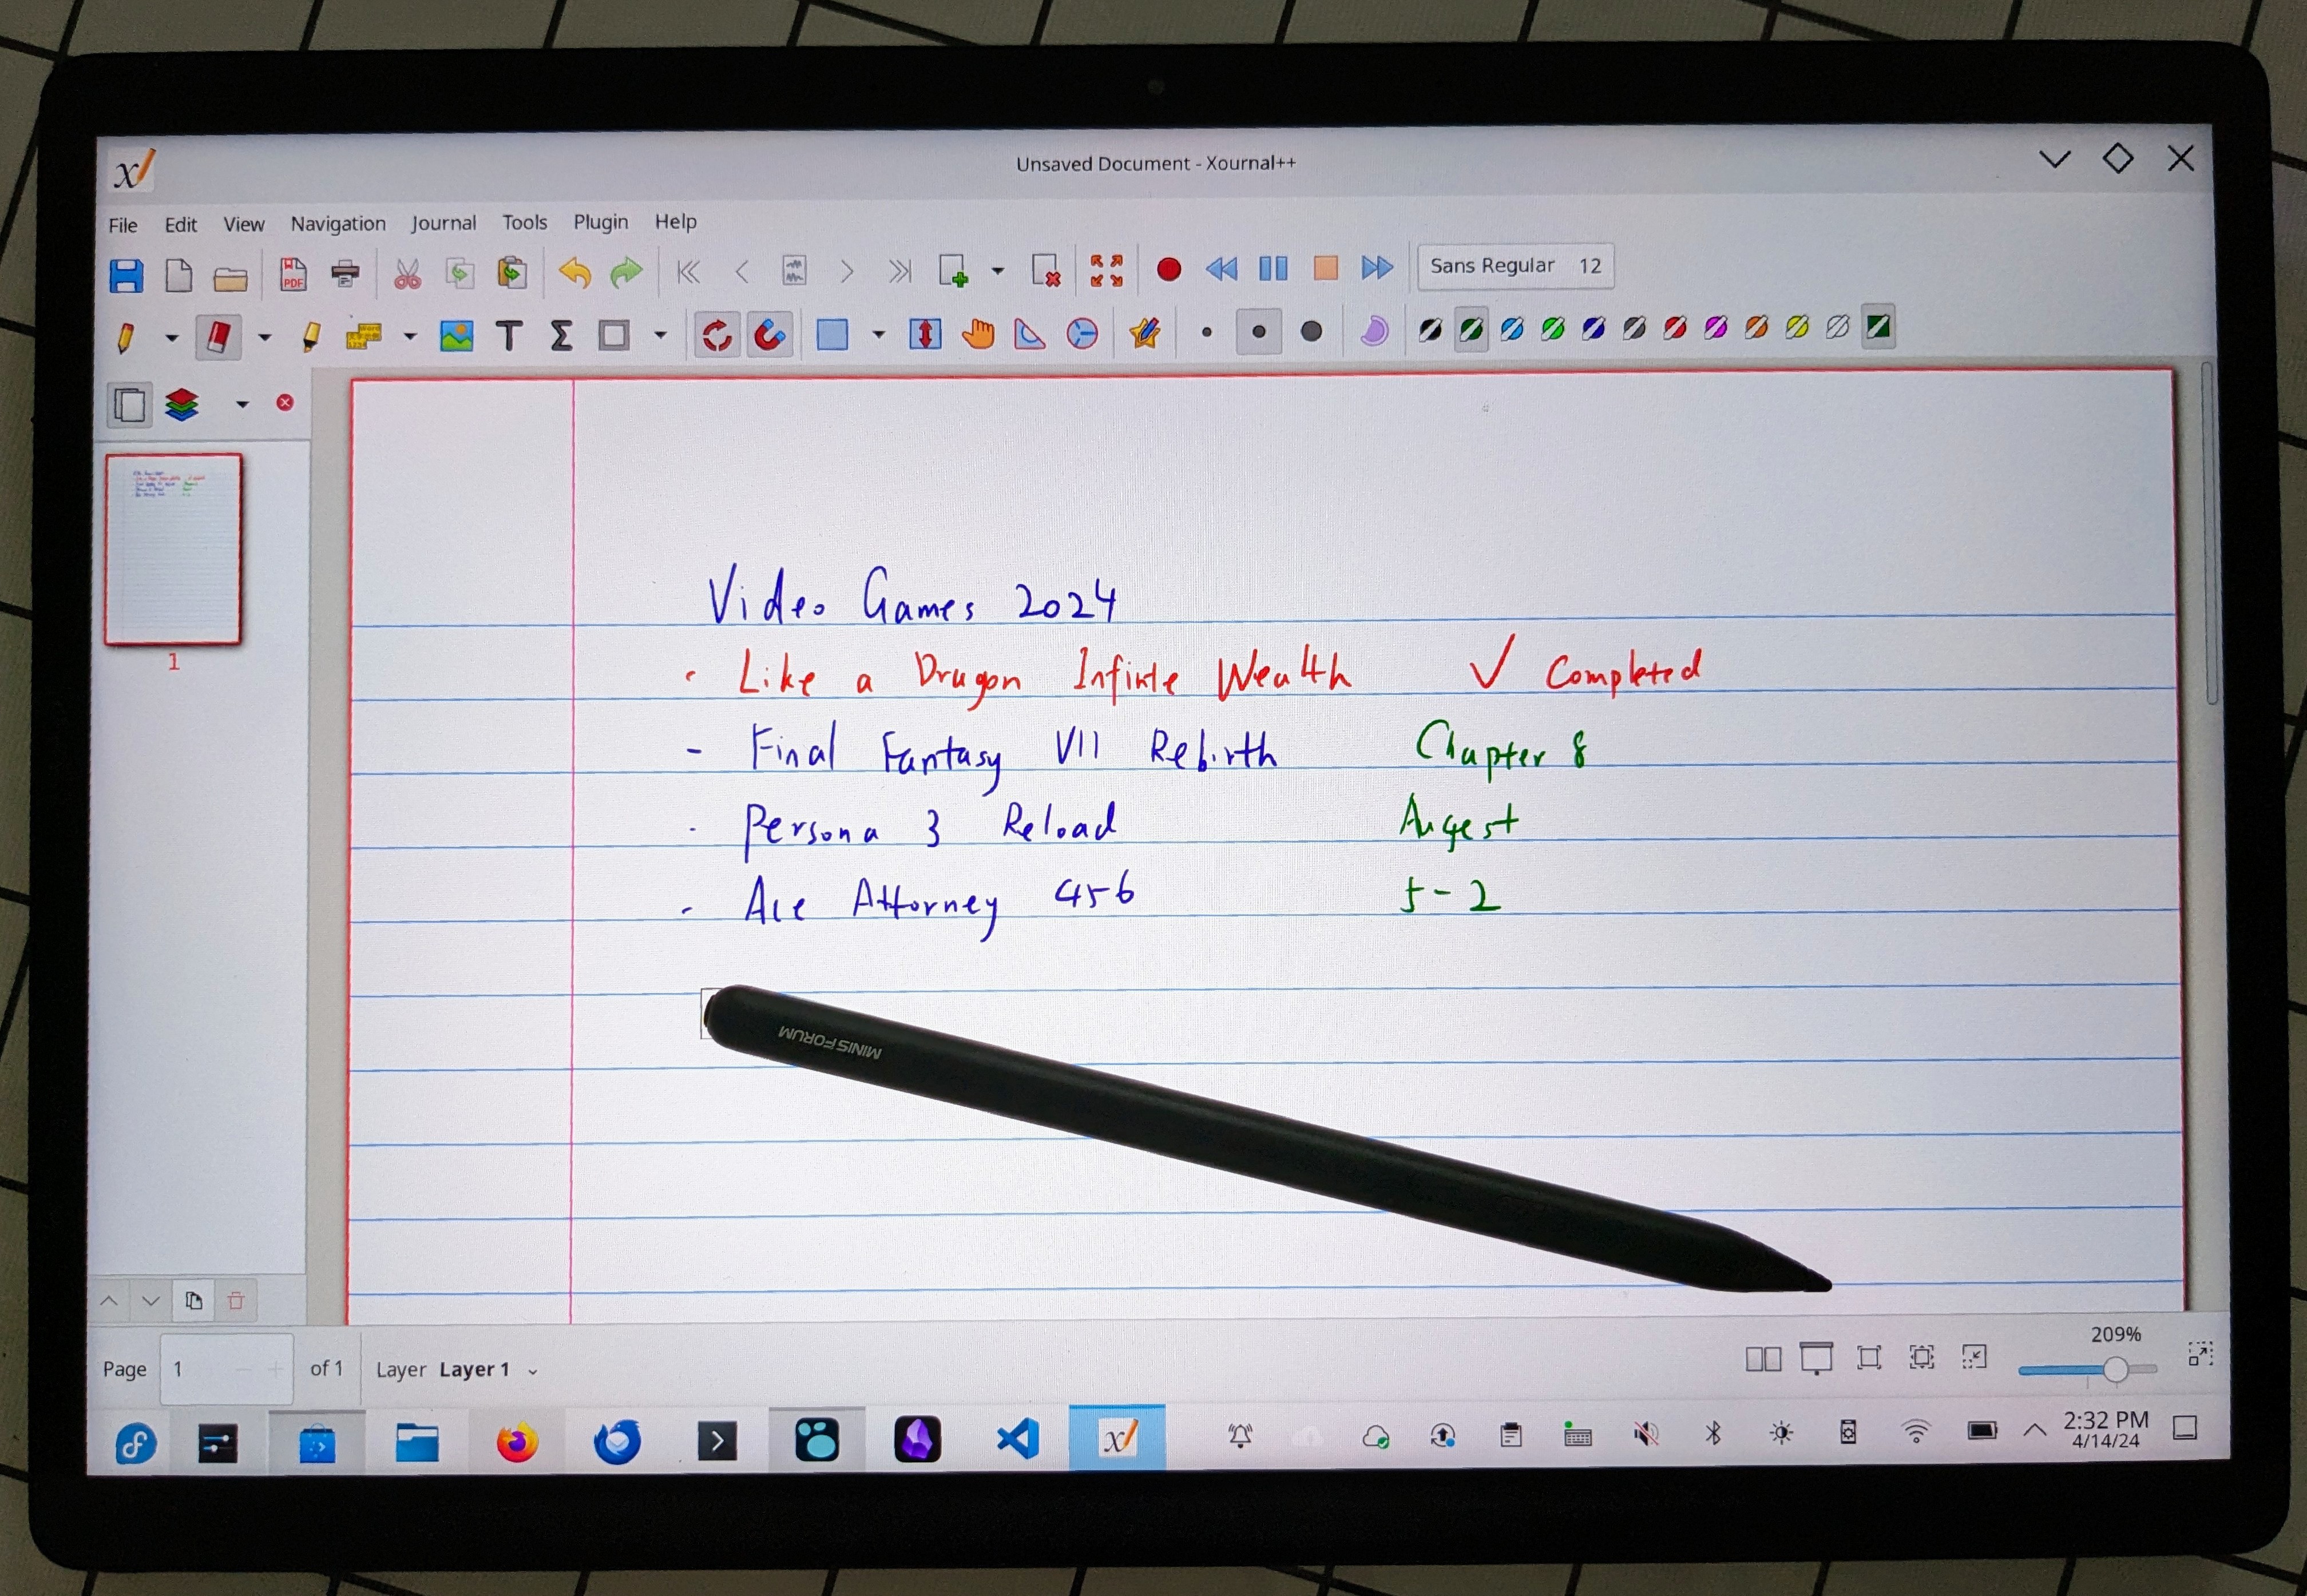 Unsaved Document - Xournal++
File Edit View Navigation Journal Tools Plugin Help
PDF Sans Regular 12
T Σ
Video Games 2024
- Like a Dragon Infinite Wealth ✓ Completed
- Final Fantasy VII Rebirth Chapter 8
- Persona 3 Reload Augest
- Ace Attorney 456 5-2
1
MINISFORUM
209%
Page 1 of 1 Layer Layer 1
2:32 PM
4/14/24